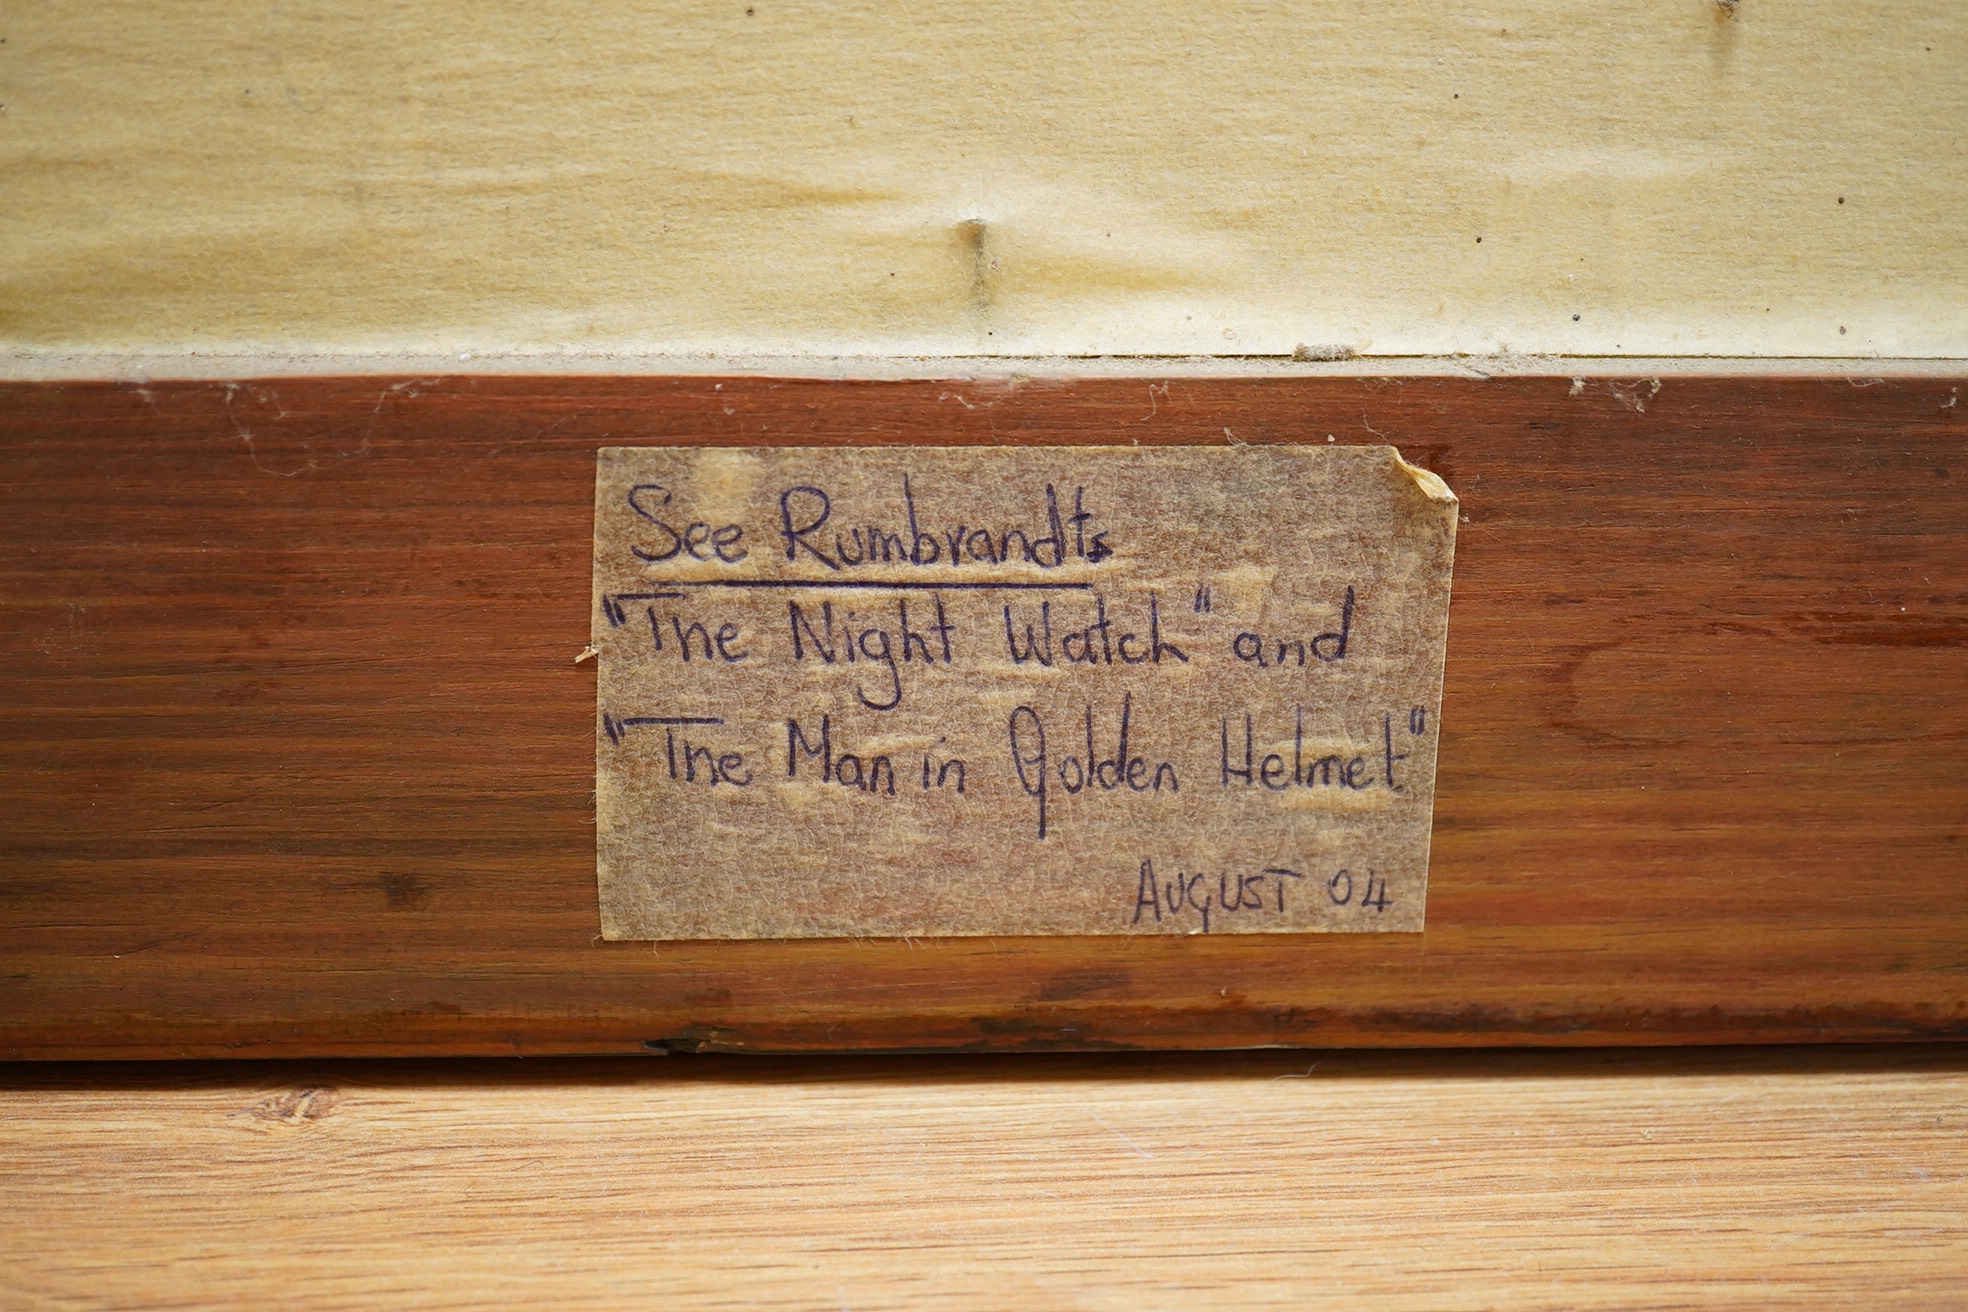 See Rumbrandts
"The Night Watch" and
"The Man in Golden Helmet"
AUGUST 04